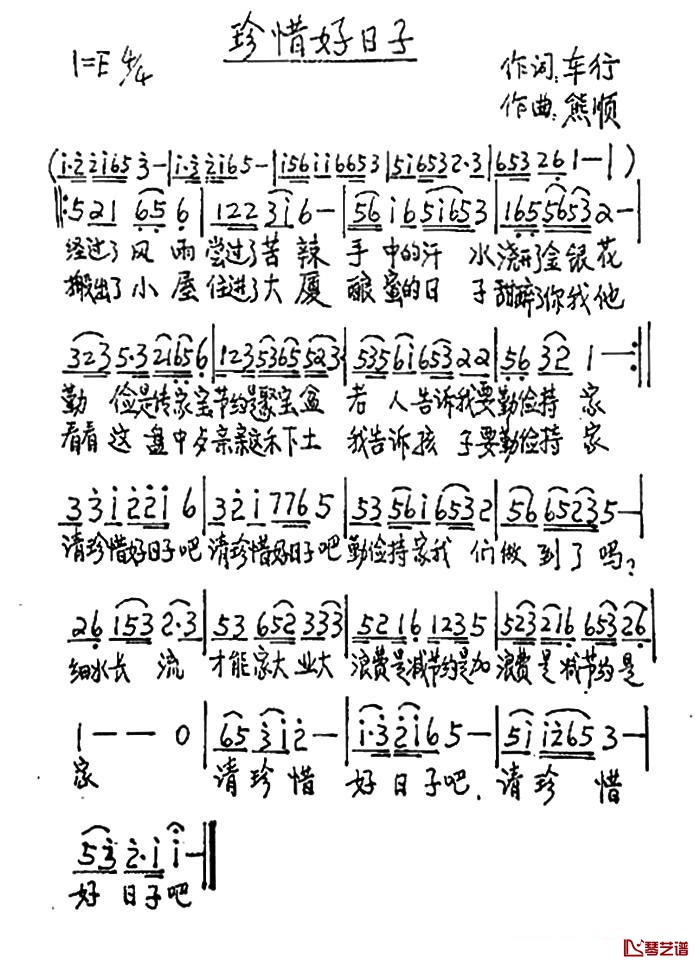 珍惜好日子
1=E 4/4
作词:车行
作曲:熊顺
(i·2 2i65 3-|i·3 2i65-|i56ii6653|5i6532·3|653 26 1-|)
‖:521 65 6|122 3i 6-|56 i6 5i653|165 5653 2-|
经过了风雨尝过了苦辣 手中的汗 水浇开了金银花
搬出了小屋住进了大厦 酿蜜的日 子甜醉了你我他
323 5·3 2165 6|123 5365 523|535 6i 653 22|56 32 1-:‖
勤 俭是传家宝节约是聚宝盆 若 人告诉我要勤俭持 家
看看这盘中歺亲亲这禾下土 我告诉孩 子要勤俭持 家
33i 22i 6|32i 776 5|53 56i 653 2|56 6523 5-|
请珍惜好日子吧请珍惜好日子吧勤俭持家我 们做到了吗?
26 153 2·3|53 652 333|52 16 123 5|523 216 653 26|
细水长 流 才能家大业大 浪费是减节约是加 浪费是减节约是
1-- 0|65 3i 2-|i·3 2i6 5-|5i i265 3-|
家 请珍惜 好日子吧,请珍 惜
53 2·i i-‖
好 日子吧
琴艺谱